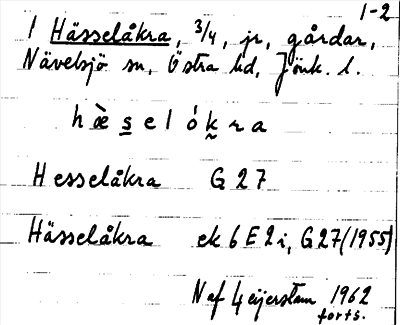 1-2
1 Hässelåkra, 3/4, jr, gårdar,
Nävelsjö sn, Östra hd, Jönk. l.
hæ̀s̲elók̰ra
Hesselåkra G27
Hässelåkra ek 6E2i, G27(1955)
N af Geijerstam 1962
forts.